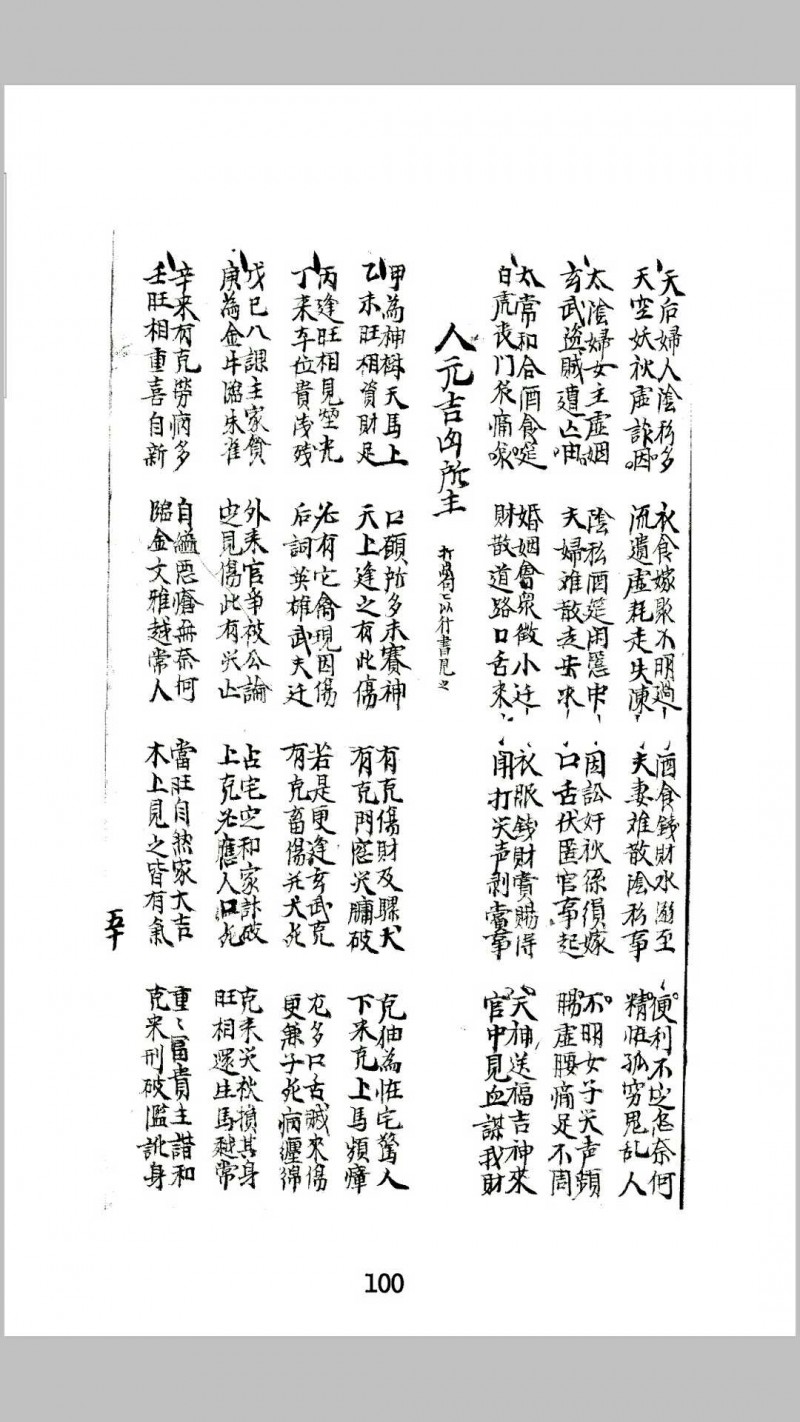 天后婦人陰私多 衣食嫁娶不明過 酒食錢財水溺至 便利不定怎奈何
天空妖狀虛詐因 流遺虛耗走失陳 夫妻难散陰私事 精怪孤穷鬼乱人
太陰婦女主虛姻 陰私酒筵用慝中 因訟奸 嫁 不明女子哭声頻
玄武盗贼遺亡 夫婦难散走 口舌伏匿官事起 腸虛腰痛足不周
太常和合酒食筵 婚姻會眾徵小迁 衣服錢財賞賜得 天神送福吉神來
白虎丧門 痛 財散道路口舌來 鬧打哭声剥 事 官中見血謀我財
人元吉凶所主 以行書見之
甲為神樹天馬上 口願所多未賽神 有克傷財及騾犬 克伷為怪宅驚人
乙未旺相資財足 天上逢之有此傷 有克門窓哭牖破 下來克上馬頻瘴
丙逢旺相見 光 必有它 現因傷 若是更逢玄武克 尨多口舌贼來傷
丁来车位貴 残 后詞英雄武夫迁 有克畜傷并犬死 更兼子死病纏綿
戊巳八課主家貧 外来官争被公論 占宅定和家 破 克来哭 損其身
庚為金斗臨朱雀 定見傷此有哭 上克必應人口死 旺相還生馬越常
辛来有克劳病多 自縊惡瘡無奈何 當旺自然家大吉 重重富貴主諧和
壬旺相重喜自新 臨金文雅越常人 木上見之皆有氣 克來刑破濫訛身
五十
100